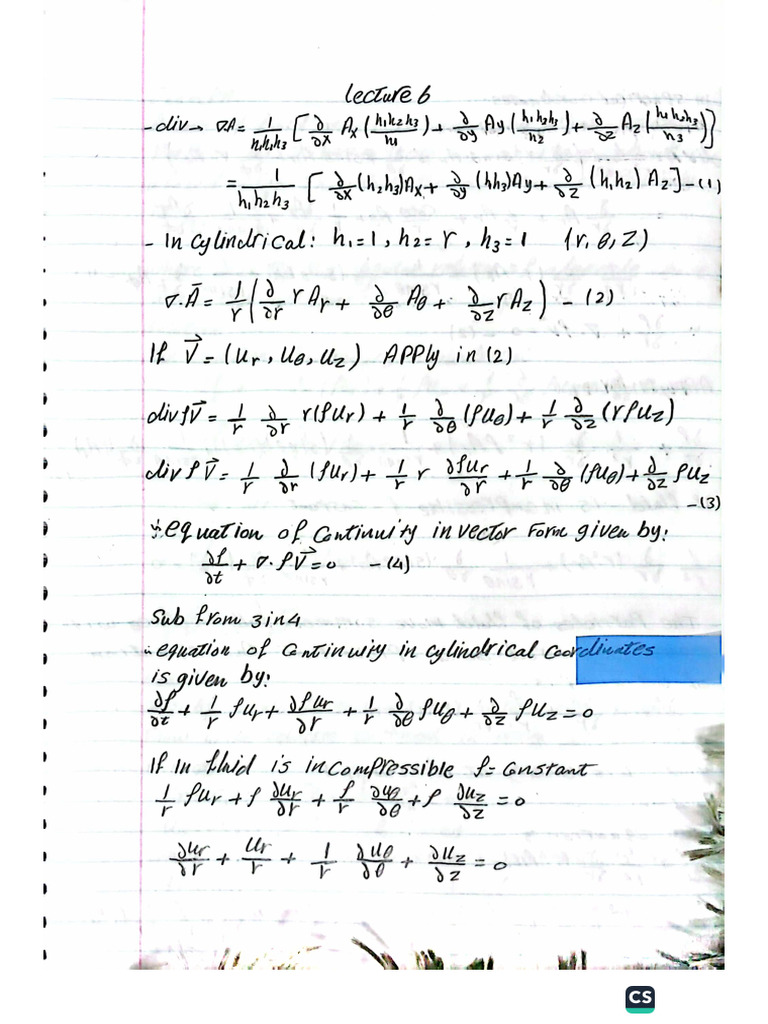 lecture 6
- div → ∇A = 1/(h₁h₂h₃) [ ∂/∂x Ax (h₁h₂h₃/h₁) + ∂/∂y Ay (h₁h₂h₃/h₂) + ∂/∂z Az (h₁h₂h₃/h₃) ]
= 1/(h₁h₂h₃) [ ∂/∂x (h₂h₃)Ax + ∂/∂y (hh₃)Ay + ∂/∂z (h₁h₂) Az ] - (1)
- In cylindrical: h₁=1, h₂=r, h₃=1 (r, θ, z)
∇.Ā = 1/r ( ∂/∂r r Ar + ∂/∂θ Aθ + ∂/∂z r Az ) - (2)
If V⃗ = (ur, uθ, uz) APPly in (2)
div ρV⃗ = 1/r ∂/∂r r(ρur) + 1/r ∂/∂θ (ρuθ) + 1/r ∂/∂z (rρuz)
div ρV⃗ = 1/r ∂/∂r (ρur) + 1/r r ∂ρur/∂r + 1/r ∂/∂θ (ρuθ) + ∂/∂z ρuz
- (3)
∵ equation of Continuity in vector Form given by:
∂ρ/∂t + ∇.ρV⃗ = 0 - (4)
Sub from 3 in 4
∴ equation of Continuity in cylindrical coordinates
is given by:
∂ρ/∂t + 1/r ρur + ∂ρur/∂r + 1/r ∂/∂θ ρuθ + ∂/∂z ρuz = 0
If In fluid is incompressible ρ = Constant
1/r ρur + ρ ∂ur/∂r + ρ/r ∂uθ/∂θ + ρ ∂uz/∂z = 0
∂ur/∂r + ur/r + 1/r ∂uθ/∂θ + ∂uz/∂z = 0
CS